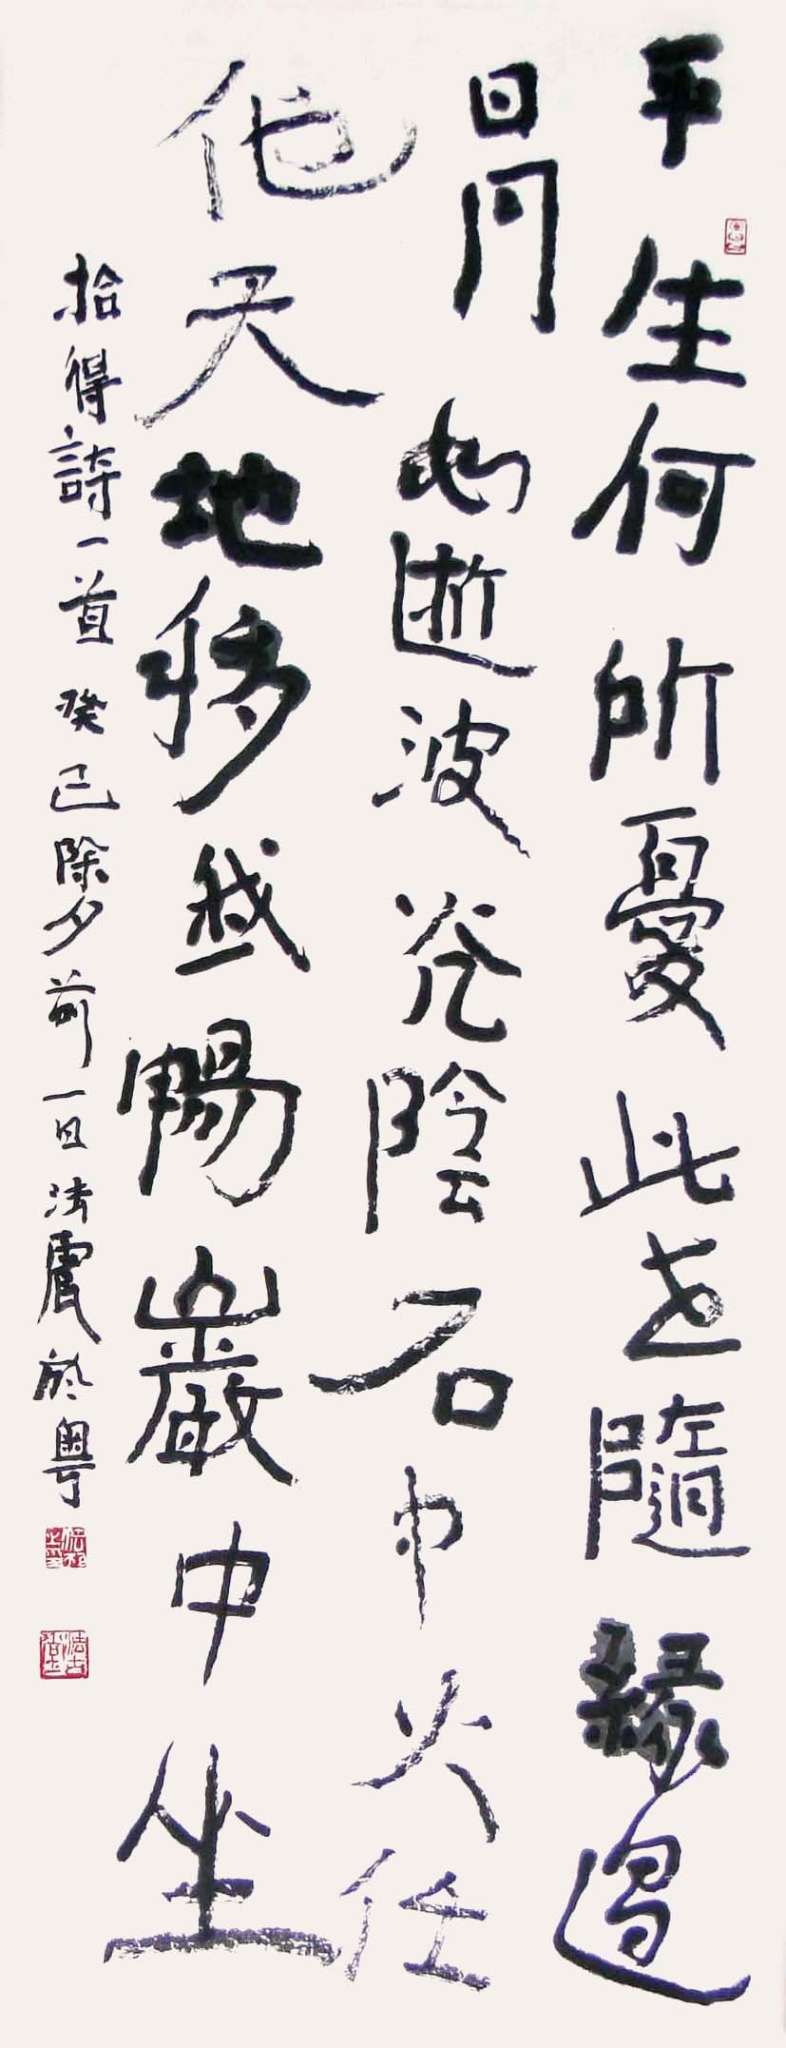 平生何所憂此世隨緣過
日月如逝波光陰石中火任
他天地移我暢巖中坐
拾得詩一首 癸巳除夕前一日法震於粵